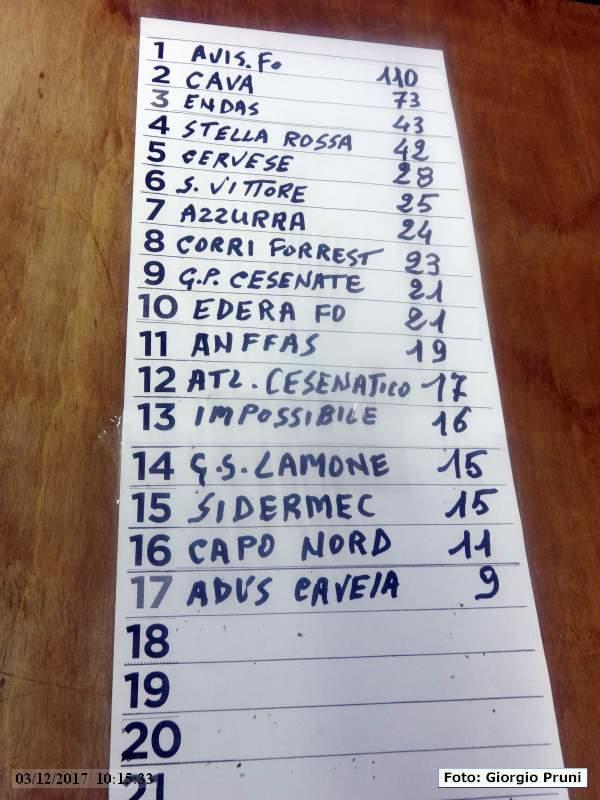 1 AVIS. FO 110
2 CAVA 73
3 ENDAS 43
4 STELLA ROSSA 42
5 CERVESE 28
6 S. VITTORE 25
7 AZZURRA 24
8 CORRI FORREST 23
9 G.P. CESENATE 21
10 EDERA FO 21
11 ANFFAS 19
12 ATL. CESENATICO 17
13 IMPOSSIBILE 16
14 G.S. LAMONE 15
15 SIDERMEC 15
16 CAPO NORD 11
17 ADVS CAVEIA 9
18
19
20
21
03/12/2017 10:15:33
Foto: Giorgio Pruni